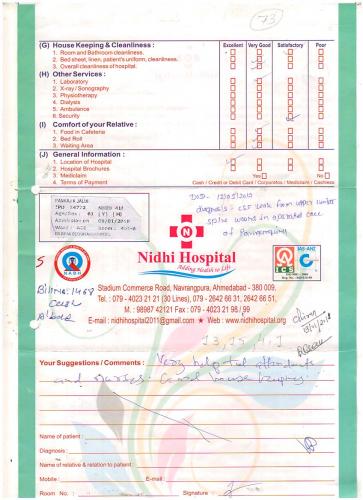 73
(G) House Keeping & Cleanliness : Excellent Very Good Satisfactory Poor
1. Room and Bathroom cleanliness.
2. Bed sheet, linen, patient's uniform, cleanliness.
3. Overall cleanliness of hospital.
(H) Other Services :
1. Laboratory
2. X-ray / Sonography
3. Physiotherapy
4. Dialysis
5. Ambulance
6. Security
(I) Comfort of your Relative :
1. Food in Cafeteria
2. Bed Roll
3. Waiting Area
(J) General Information :
1. Location of Hospital
2. Hospital Brochures
3. Mediclaim Yes No
4. Terms of Payment Cash / Credit or Debit Card / Corporates / Mediclaim / Cashless
PANKAJ JAIN
diagnosis - CSF leak from upper lumbar
spine wound in operated case
of
NABH
Nidhi Hospital
Adding Health to Life
ICS
JAS-ANZ
Stadium Commerce Road, Navrangpura, Ahmedabad - 380 009.
Tel. : 079 - 4023 21 21 (30 Lines), 079 - 2642 66 31, 2642 66 51,
M. : 98987 42121 Fax : 079 - 4023 21 98 / 99
E-mail : nidhihospital2011@gmail.com ★ Web : www.nidhihospital.org
Bill No: 1468
13, 15, 4, 1
Your Suggestions / Comments : Very helpful attendants
and nurses. Good housekeeping
Name of patient :
Diagnosis :
Name of relative & relation to patient
Mobile : E-mail :
Room No. : Signature